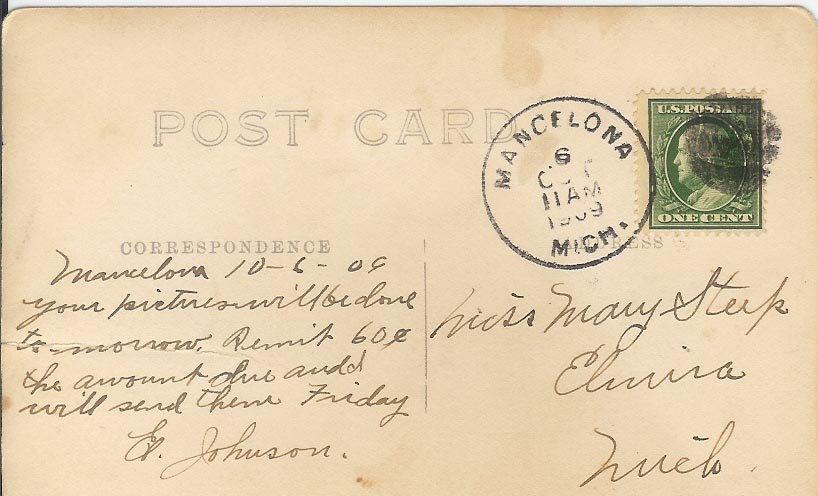 POST CARD
MANCELONA
6
OCT
11 AM
1909
MICH.
U.S. POSTAGE
ONE CENT
CORRESPONDENCE
Mancelona 10-6-09
your pictures will be done
to-morrow. Remit 60¢
the amount due and I
will send them Friday
Johnson.
Miss Mary Steep
Elmira
Mich.